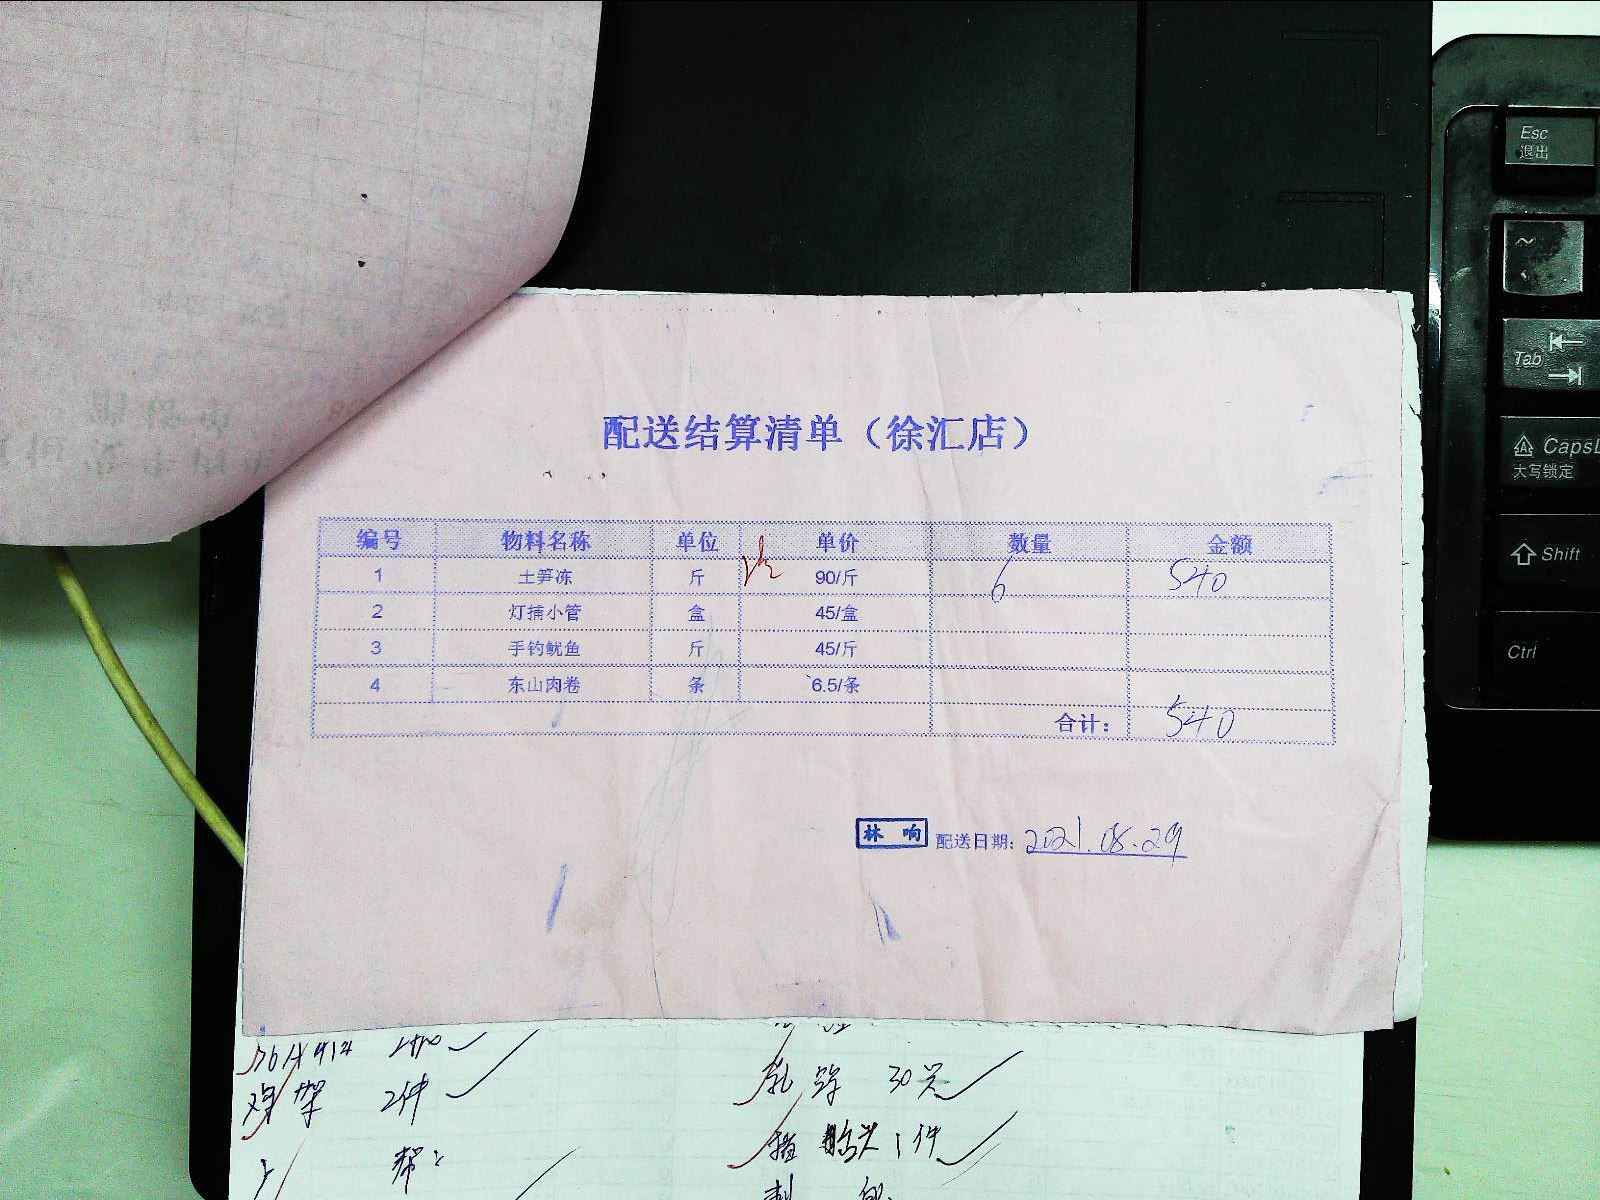 配送结算清单（徐汇店）
编号 物料名称 单位 单价 数量 金额
1 土笋冻 斤 90/斤 6 540
2 灯捕小管 盒 45/盒
3 手钓鱿鱼 斤 45/斤
4 东山肉卷 条 6.5/条
合计： 540
林响 配送日期：2021.08.29
鸡架 2件
乳鸽 30只
1件
Esc
退出
~
Tab
CapsL
大写锁定
Shift
Ctrl